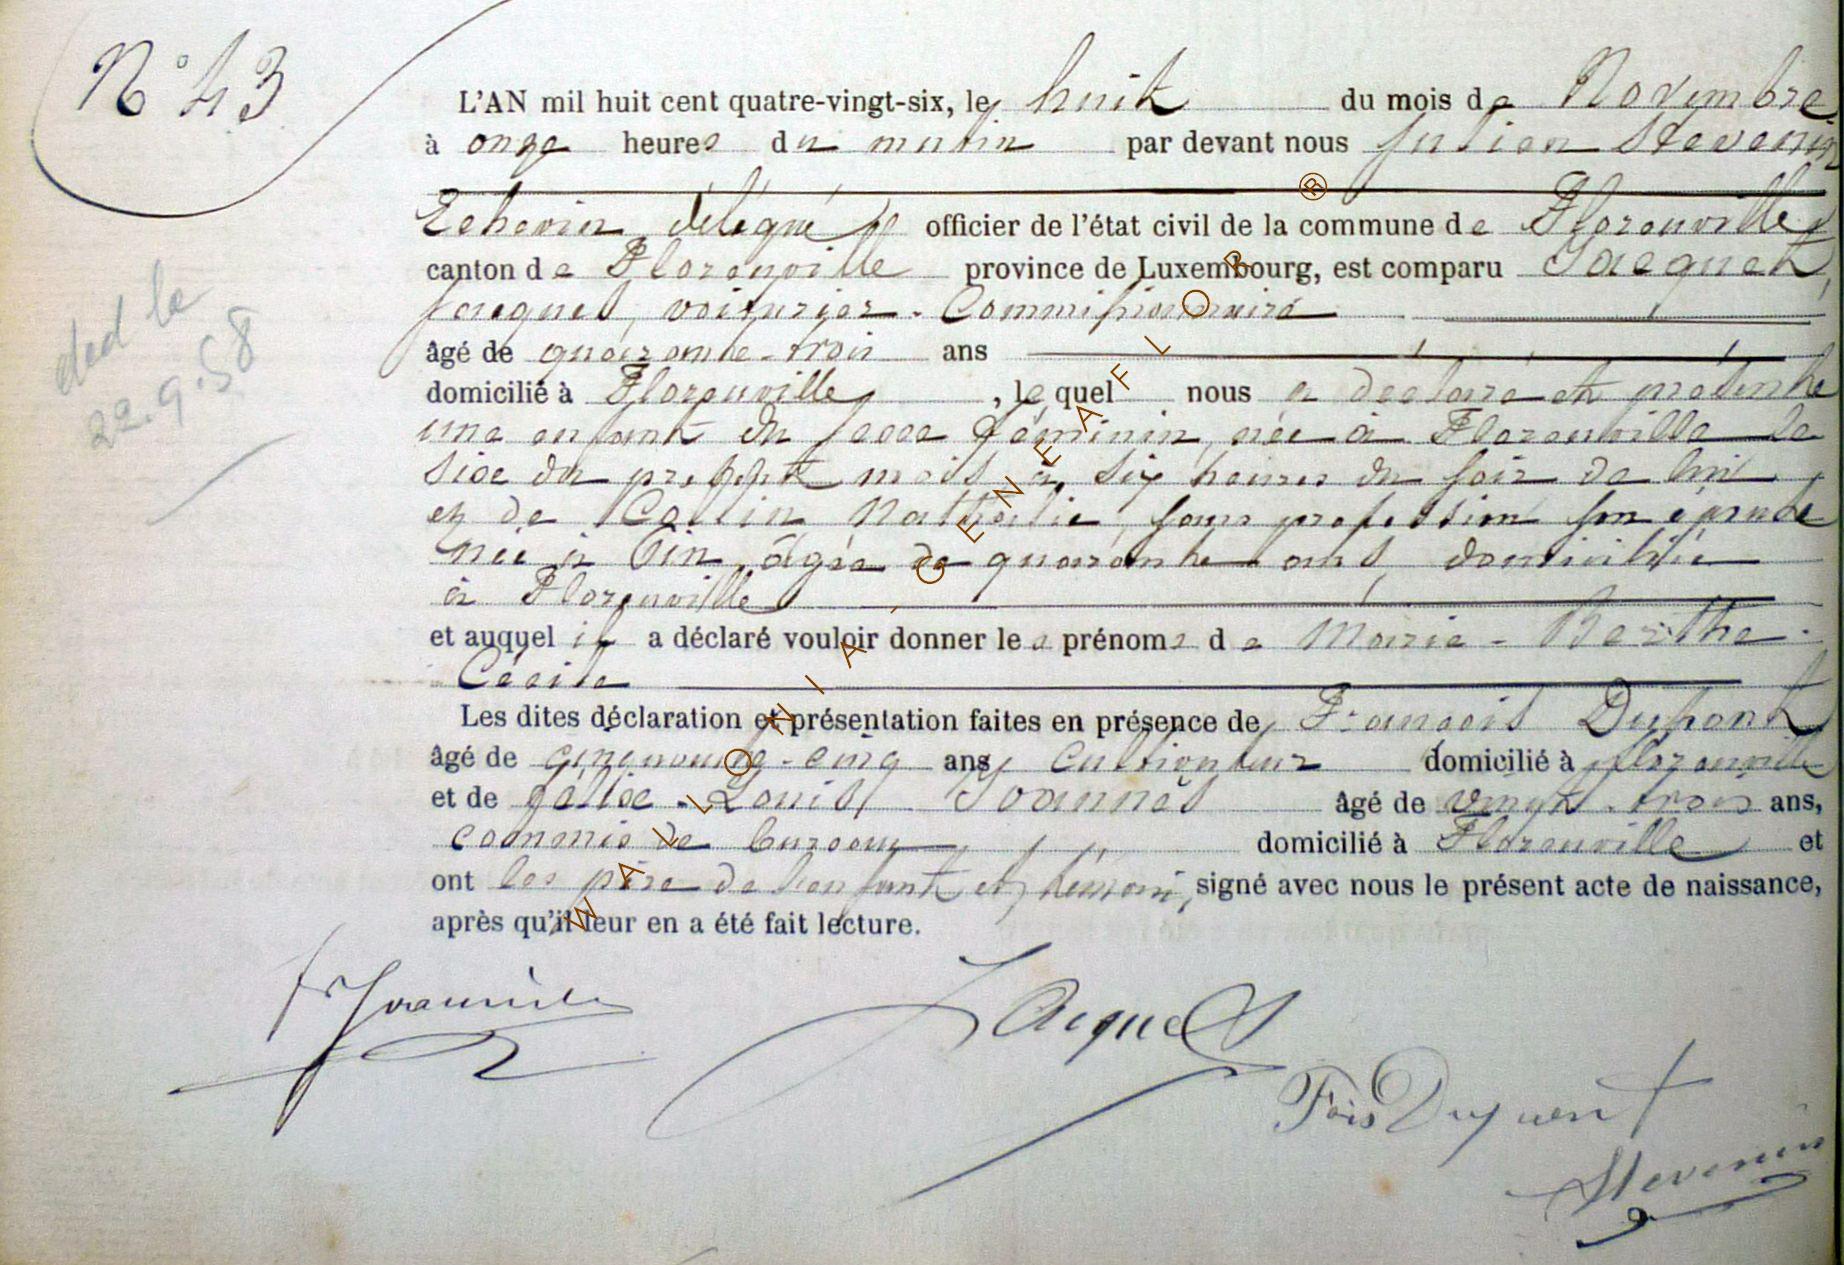 N° 43
L'AN mil huit cent quatre-vingt-six, le huit du mois de Novembre
à onze heures du matin par devant nous Julien Stevenin
Echevin délégué officier de l'état civil de la commune de Florenville
canton de Florenville province de Luxembourg, est comparu Jacquet
Jacques, voiturier-Commissionnaire
âgé de quarante-trois ans
domicilié à Florenville, lequel nous a déclaré et présenté
une enfant du sexe féminin, née à Florenville le
six du présent mois à six heures du soir de lui
et de Colin Nathalie, sans profession son épouse
née à Pin, âgée de quarante ans, domiciliée
à Florenville
et auquel il a déclaré vouloir donner les prénoms de Marie-Berthe-
Cécile
Les dites déclaration et présentation faites en présence de François Dupont
âgé de cinquante-cinq ans cultivateur domicilié à Florenville
et de Félix-Louis Joannès âgé de vingt-trois ans,
commis de bureau domicilié à Florenville et
ont les père de l'enfant et témoins, signé avec nous le présent acte de naissance,
après qu'il leur en a été fait lecture.
déd le
22.9.58
Jacquet
Stevenin
WALLONIA-GENEAFLOR®